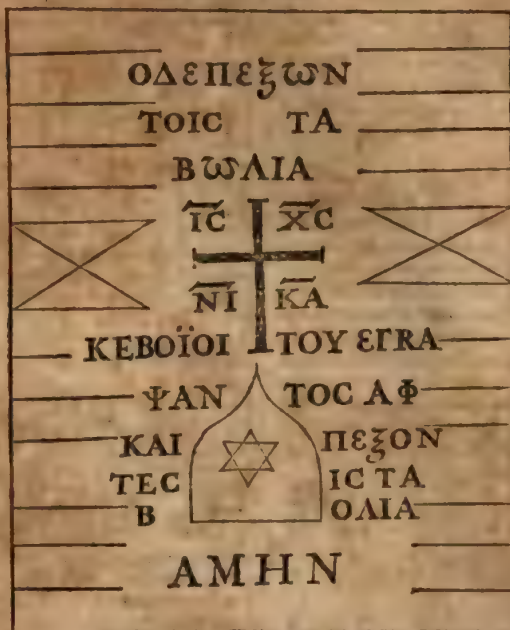 ΟΔΕΠΕξΩΝ
ΤΟΙϹ ΤΑ
ΒΩΛΙΑ
ΙϹ ΧϹ
ΝΙ ΚΑ
ΚΕΒΟΪΟΙ ΤΟΥ ΕΓRΑ
ΨΑΝ ΤΟϹ ΑΦ
ΚΑΙ ΠΕξΟΝ
ΤΕϹ ΙϹ ΤΑ
Β ΟΛΙΑ
ΑΜΗΝ